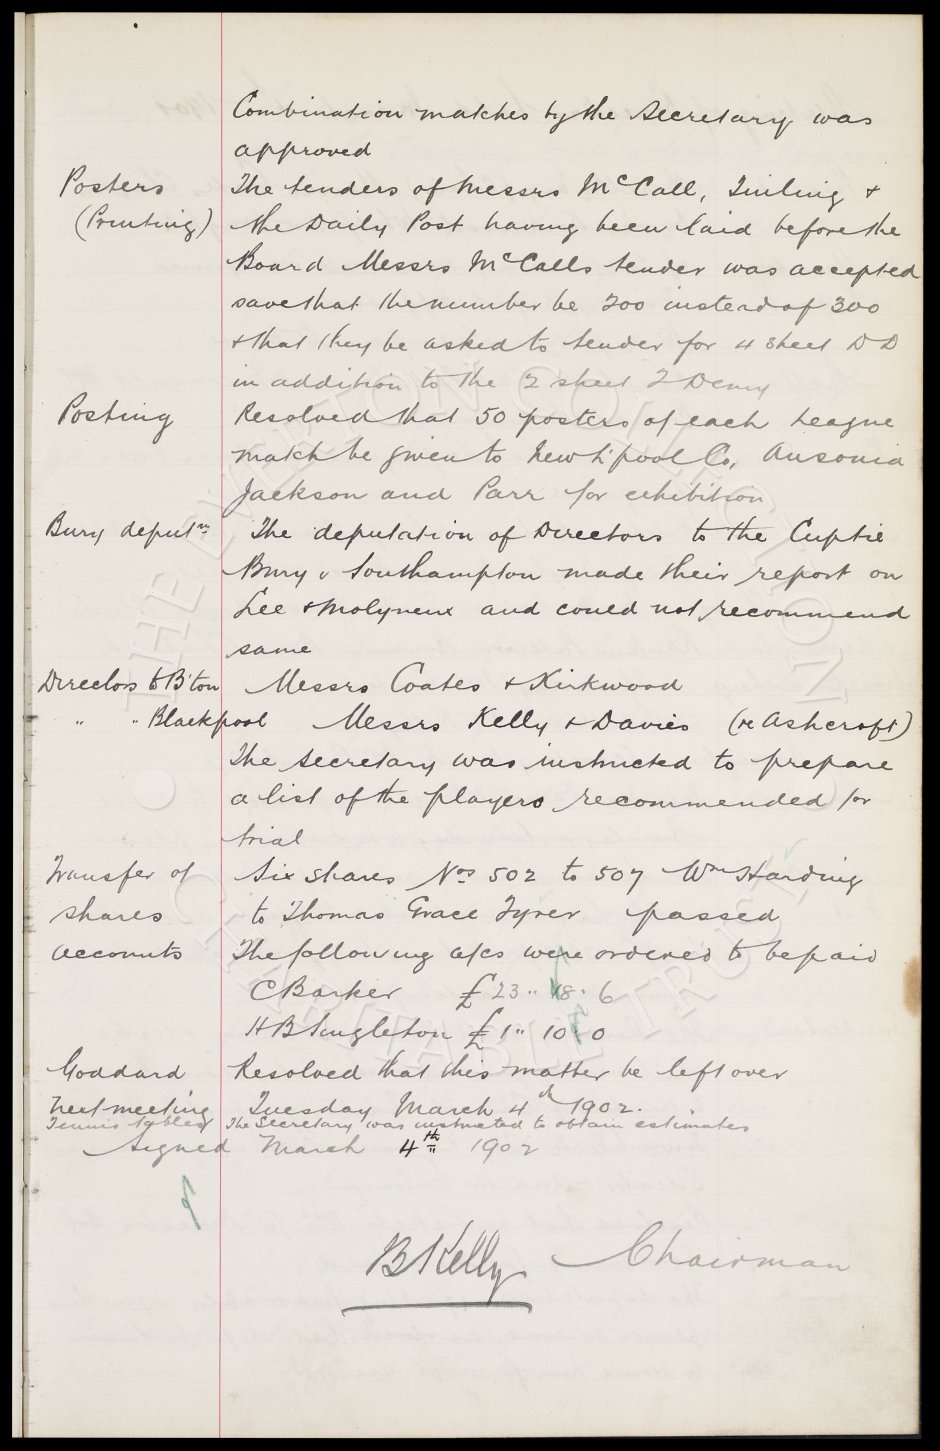 Combination matches by the Secretary was
approved
Posters The tenders of Messrs McCall, Tinling &
(Printing) the Daily Post having been laid before the
Board Messrs McCalls tender was accepted
save that the number be 200 instead of 300
& that they be asked to tender for 4 sheet D D
in addition to the 2 sheet 2 Demy
Posting Resolved that 50 posters of each League
match be given to New L'pool Co, Ausonia
Jackson and Parr for exhibition
Bury deputn The deputation of Directors to the Cuptie
Bury v Southampton made their report on
Lee & Molyneux and could not recommend
same
Directors to B'ton Messrs Coates & Kirkwood
" " Blackpool Messrs Kelly & Davies (re Ashcroft)
The Secretary was instructed to prepare
a list of the players recommended for
trial
Transfer of Six shares Nos 502 to 507 Wm Harding
shares to Thomas Grace Tyrer passed
Accounts The following a/cs were ordered to be paid
C Barker £23 " 18 " 6
H B Singleton £1 " 10 " 0
Goddard Resolved that this matter be left over
Next meeting Tuesday March 4th 1902.
Tennis tables The Secretary was instructed to obtain estimates
Signed March 4th 1902
B Kelly Chairman
© THE EVERTON COLLECTION
CHARITABLE TRUST